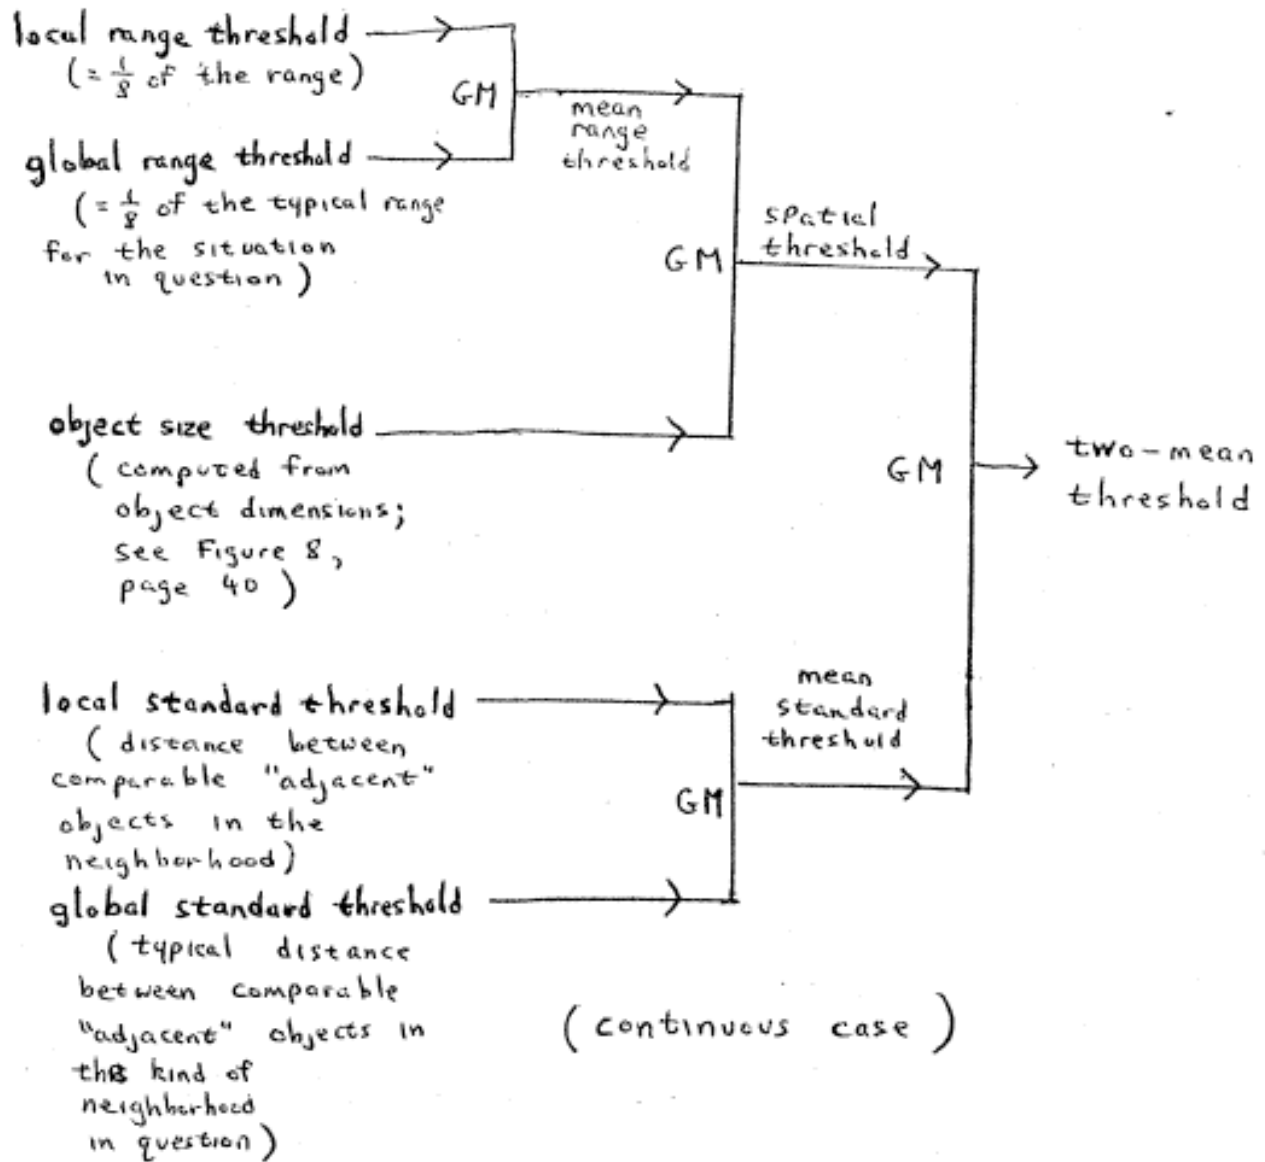 local range threshold
(= 1/8 of the range)
GM
mean
range
threshold
global range threshold
(= 1/8 of the typical range
for the situation
in question)
spatial
threshold
GM
object size threshold
(computed from
object dimensions;
see Figure 8,
page 40)
GM
two-mean
threshold
local standard threshold
(distance between
comparable "adjacent"
objects in the
neighborhood)
mean
standard
threshold
GM
global standard threshold
(typical distance
between comparable
"adjacent" objects in
the kind of
neighborhood
in question)
(continuous case)